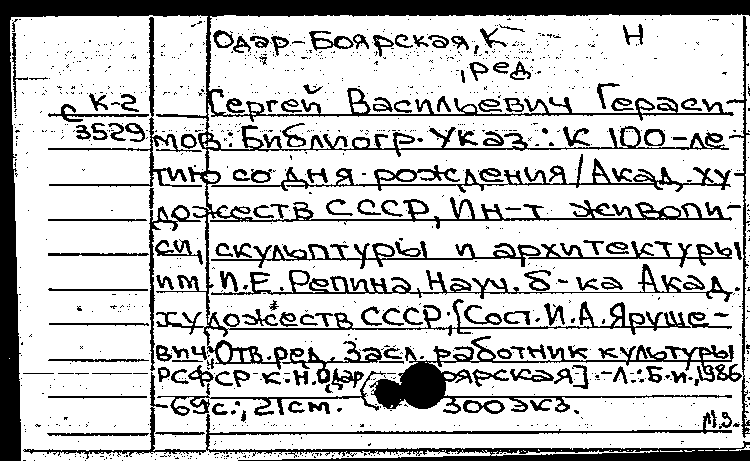 Одар-Боярская, К Н
, ред.
С К-2
3529
Сергей Васильевич Гераси-
мов: Библиогр. Указ.: К 100-ле-
тию со дня рождения/Акад. ху-
дожеств СССР, Ин-т живопи-
си, скульптуры и архитектуры
им. И.Е. Репина, Науч. б-ка Акад.
художеств СССР; [Сост. И.А. Яруше-
вич; Отв. ред. Засл. работник культуры
РСФСР К.Н. Одар оярская] -Л.: Б.и., 1986
-69с.; 21см. 300 экз.